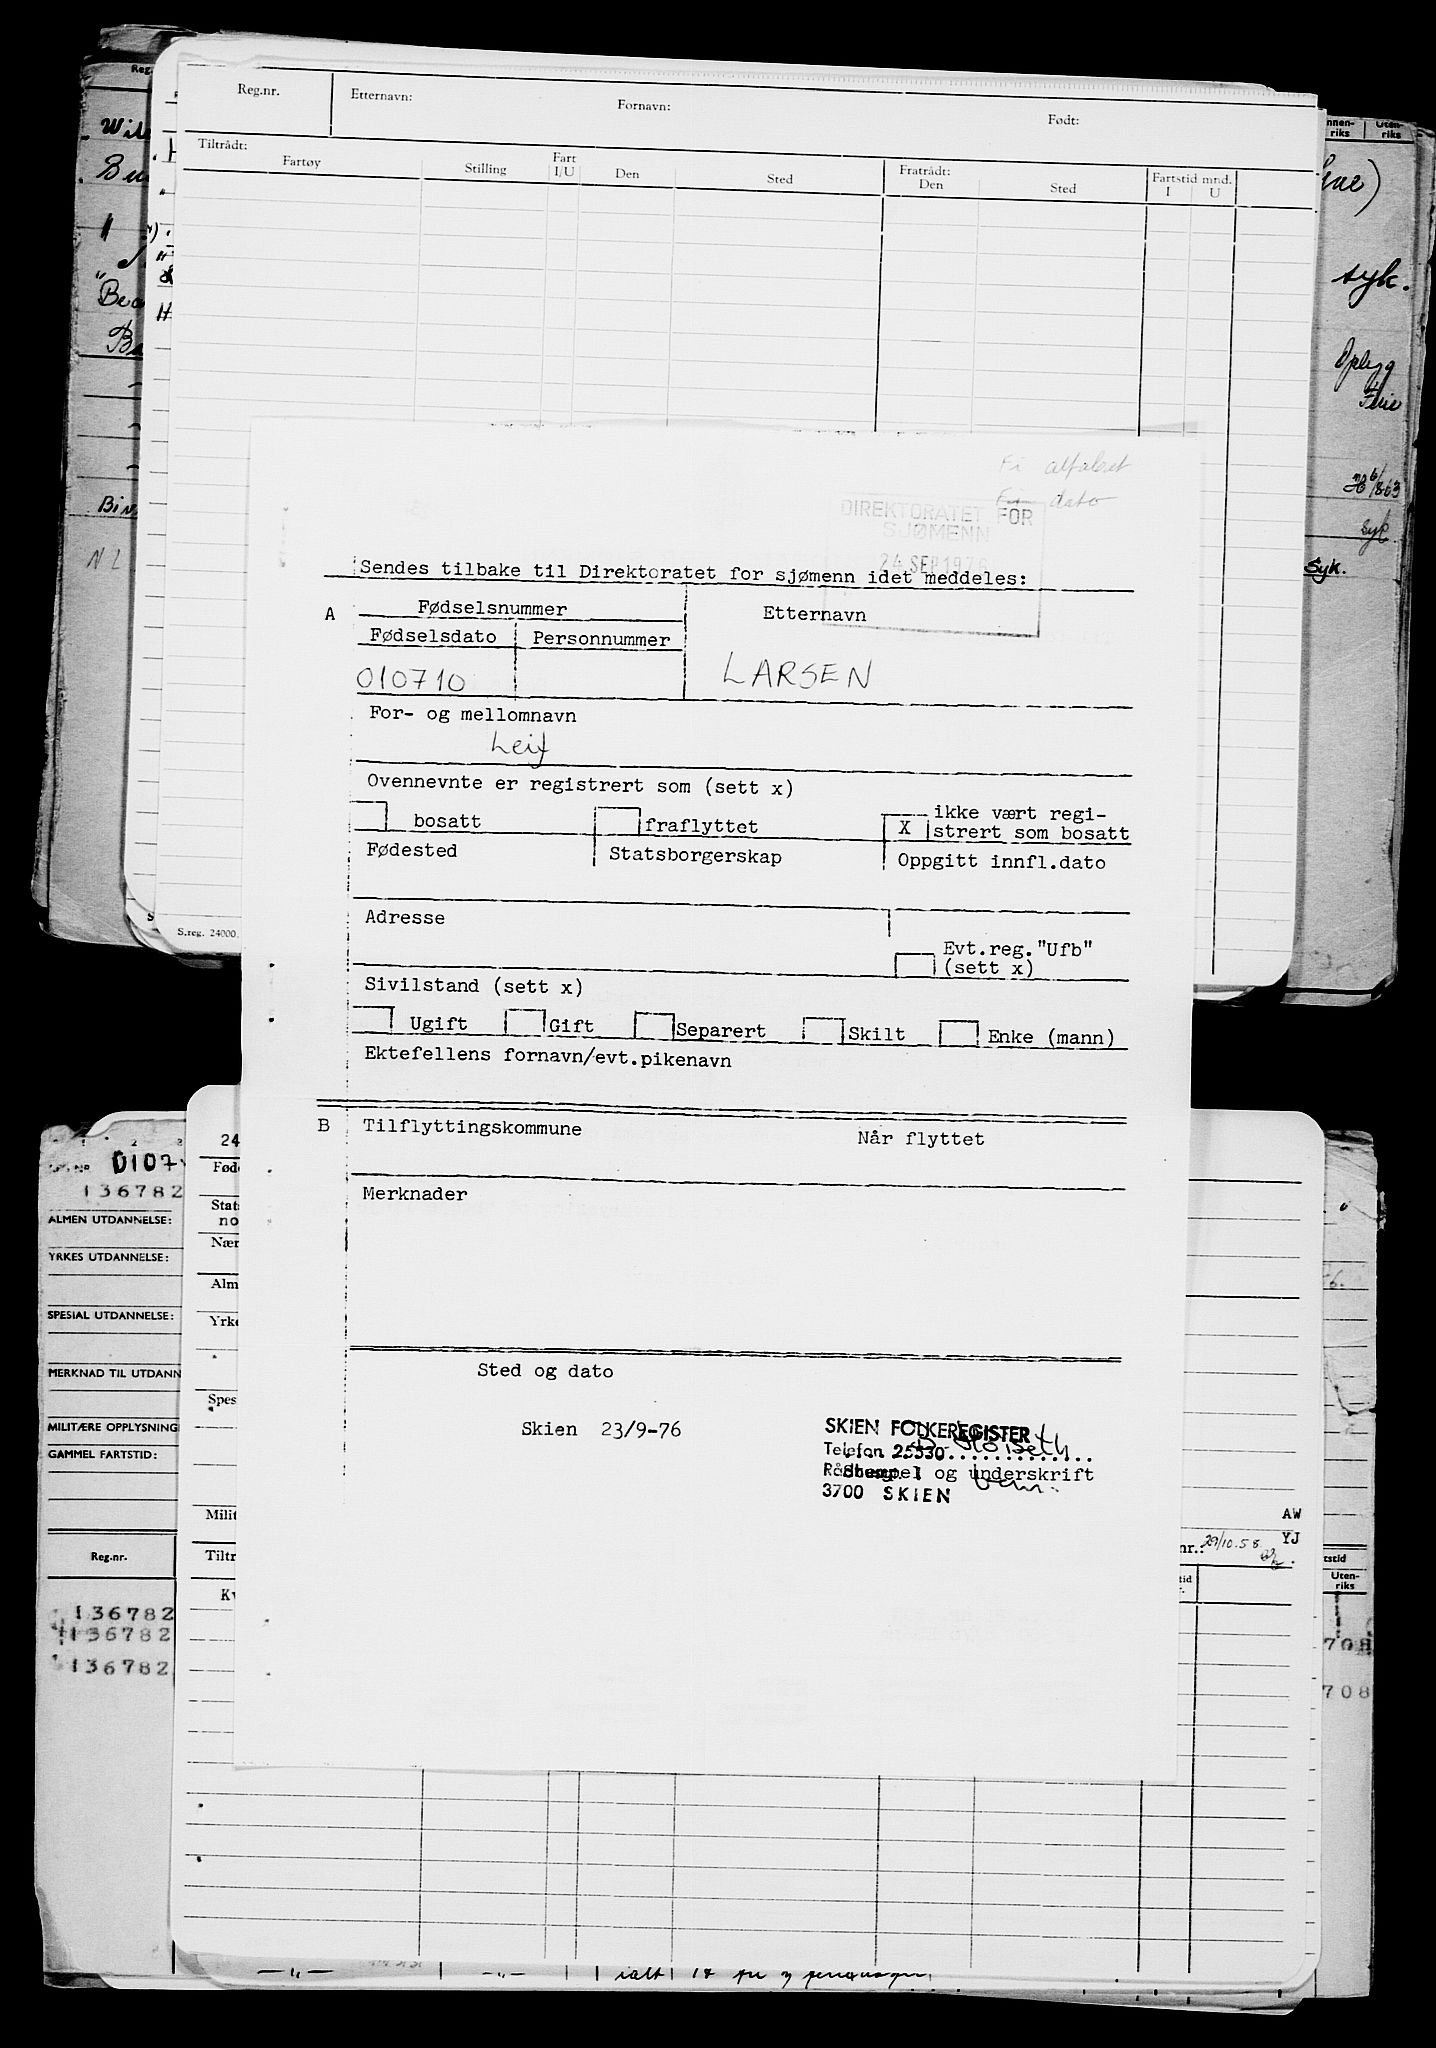 Reg.nr.
Etternavn:
Fornavn:
Født:
Tiltrådt:
Fartøy
Stilling
Fart I/U
Den
Sted
Fratrådt:
Den
Sted
Fartstid mnd.
I U
syk.
Syk.
S.reg. 24000.
Fi alfabet
Fi dato
DIREKTORATET FOR
SJØMENN
24 SEP 1976
Sendes tilbake til Direktoratet for sjømenn idet meddeles:
A
Fødselsnummer
Etternavn
Fødselsdato
Personnummer
010710
LARSEN
For- og mellomnavn
Leif
Ovennevnte er registrert som (sett x)
bosatt
fraflyttet
X
ikke vært regi-
strert som bosatt
Fødested
Statsborgerskap
Oppgitt innfl.dato
Adresse
Evt.reg."Ufb"
(sett x)
Sivilstand (sett x)
Ugift
Gift
Separert
Skilt
Enke (mann)
Ektefellens fornavn/evt.pikenavn
B
Tilflyttingskommune
Når flyttet
Merknader
Sted og dato
Skien 23/9-76
SKIEN FOLKEREGISTER
Telefon 25530
Stempel og underskrift
3700 SKIEN
0107
136782
ALMEN UTDANNELSE:
YRKES UTDANNELSE:
SPESIAL UTDANNELSE:
MERKNAD TIL UTDANN
MILITÆRE OPPLYSNING
GAMMEL FARTSTID:
Reg.nr.
136782
136782
136782
24
Fød
Stat
no
Nær
Alm
Yrke
Spes
Milit
Tiltr
AW
YJ
nr.:
29/10.58
Uten-
riks
708
708
ialt